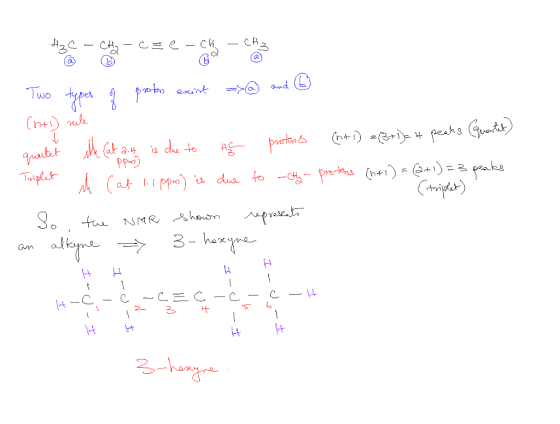 H₃C – CH₂ – C ≡ C – CH₂ – CH₃
ⓐ ⓑ ⓑ ⓐ
Two types of proton exist ⟹ ⓐ and ⓑ
(n+1) rule
↓
quartet (at 2.4 ppm) is due to H₃C protons (n+1) = (3+1) = 4 peaks (quartet)
Triplet (at 1.1 ppm) is due to –CH₂– protons (n+1) = (2+1) = 3 peaks (triplet)
So, the NMR shown represents
an alkyne ⟹ 3-hexyne
H H H H
H – C – C – C ≡ C – C – C – H
1 2 3 4 5 6
H H H H
3-hexyne.